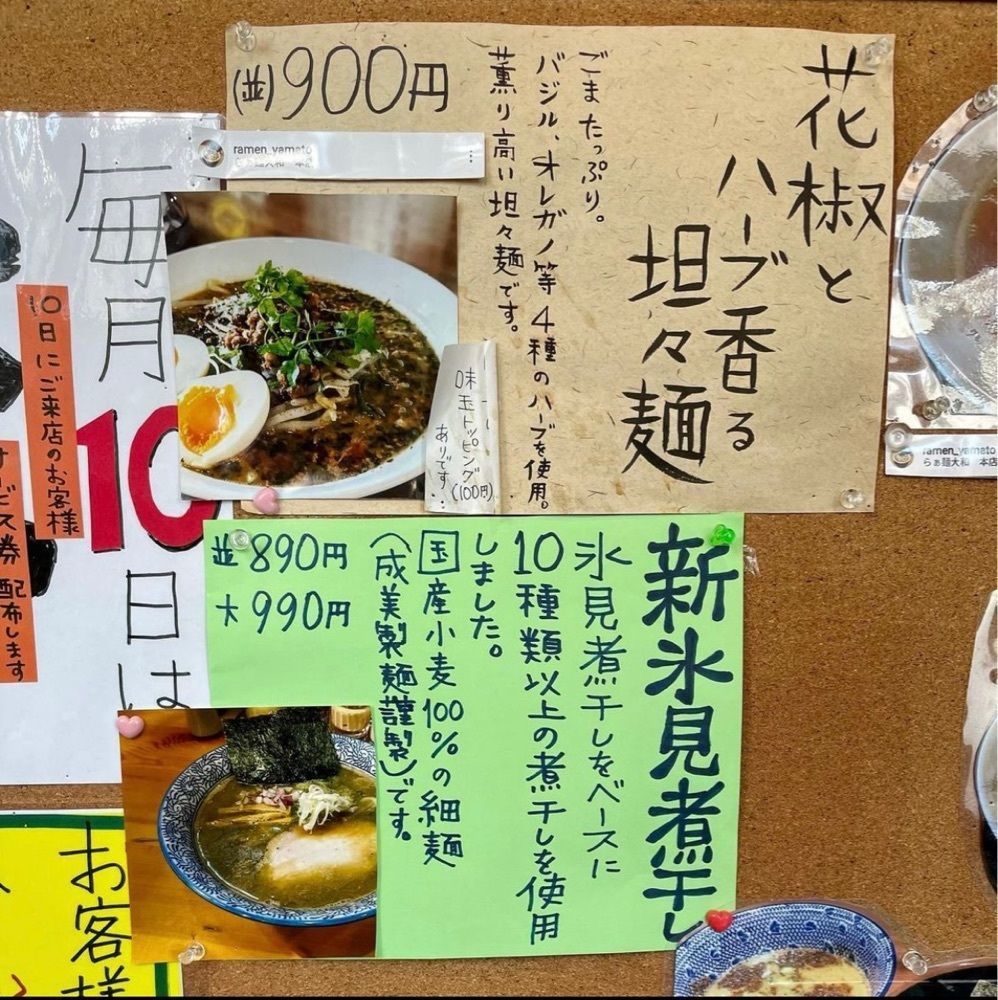 花椒と
ハーブ香る
坦々麺
ごまたっぷり。
バジル、オレガノ等4種のハーブを使用。
薫り高い坦々麺です。
(並)900円
ramen_yamato
らぁ麺大和 本店
味玉トッピング
(100円)
ありです。
新氷見煮干し
氷見煮干しをベースに
10種類以上の煮干しを使用
しました。
国産小麦100%の細麺
(成美製麺謹製)です。
並890円
大990円
毎月
10
日は
10日にご来店のお客様
ビス券配布します
お客様
ramen_yamato
らぁ麺大和 本店